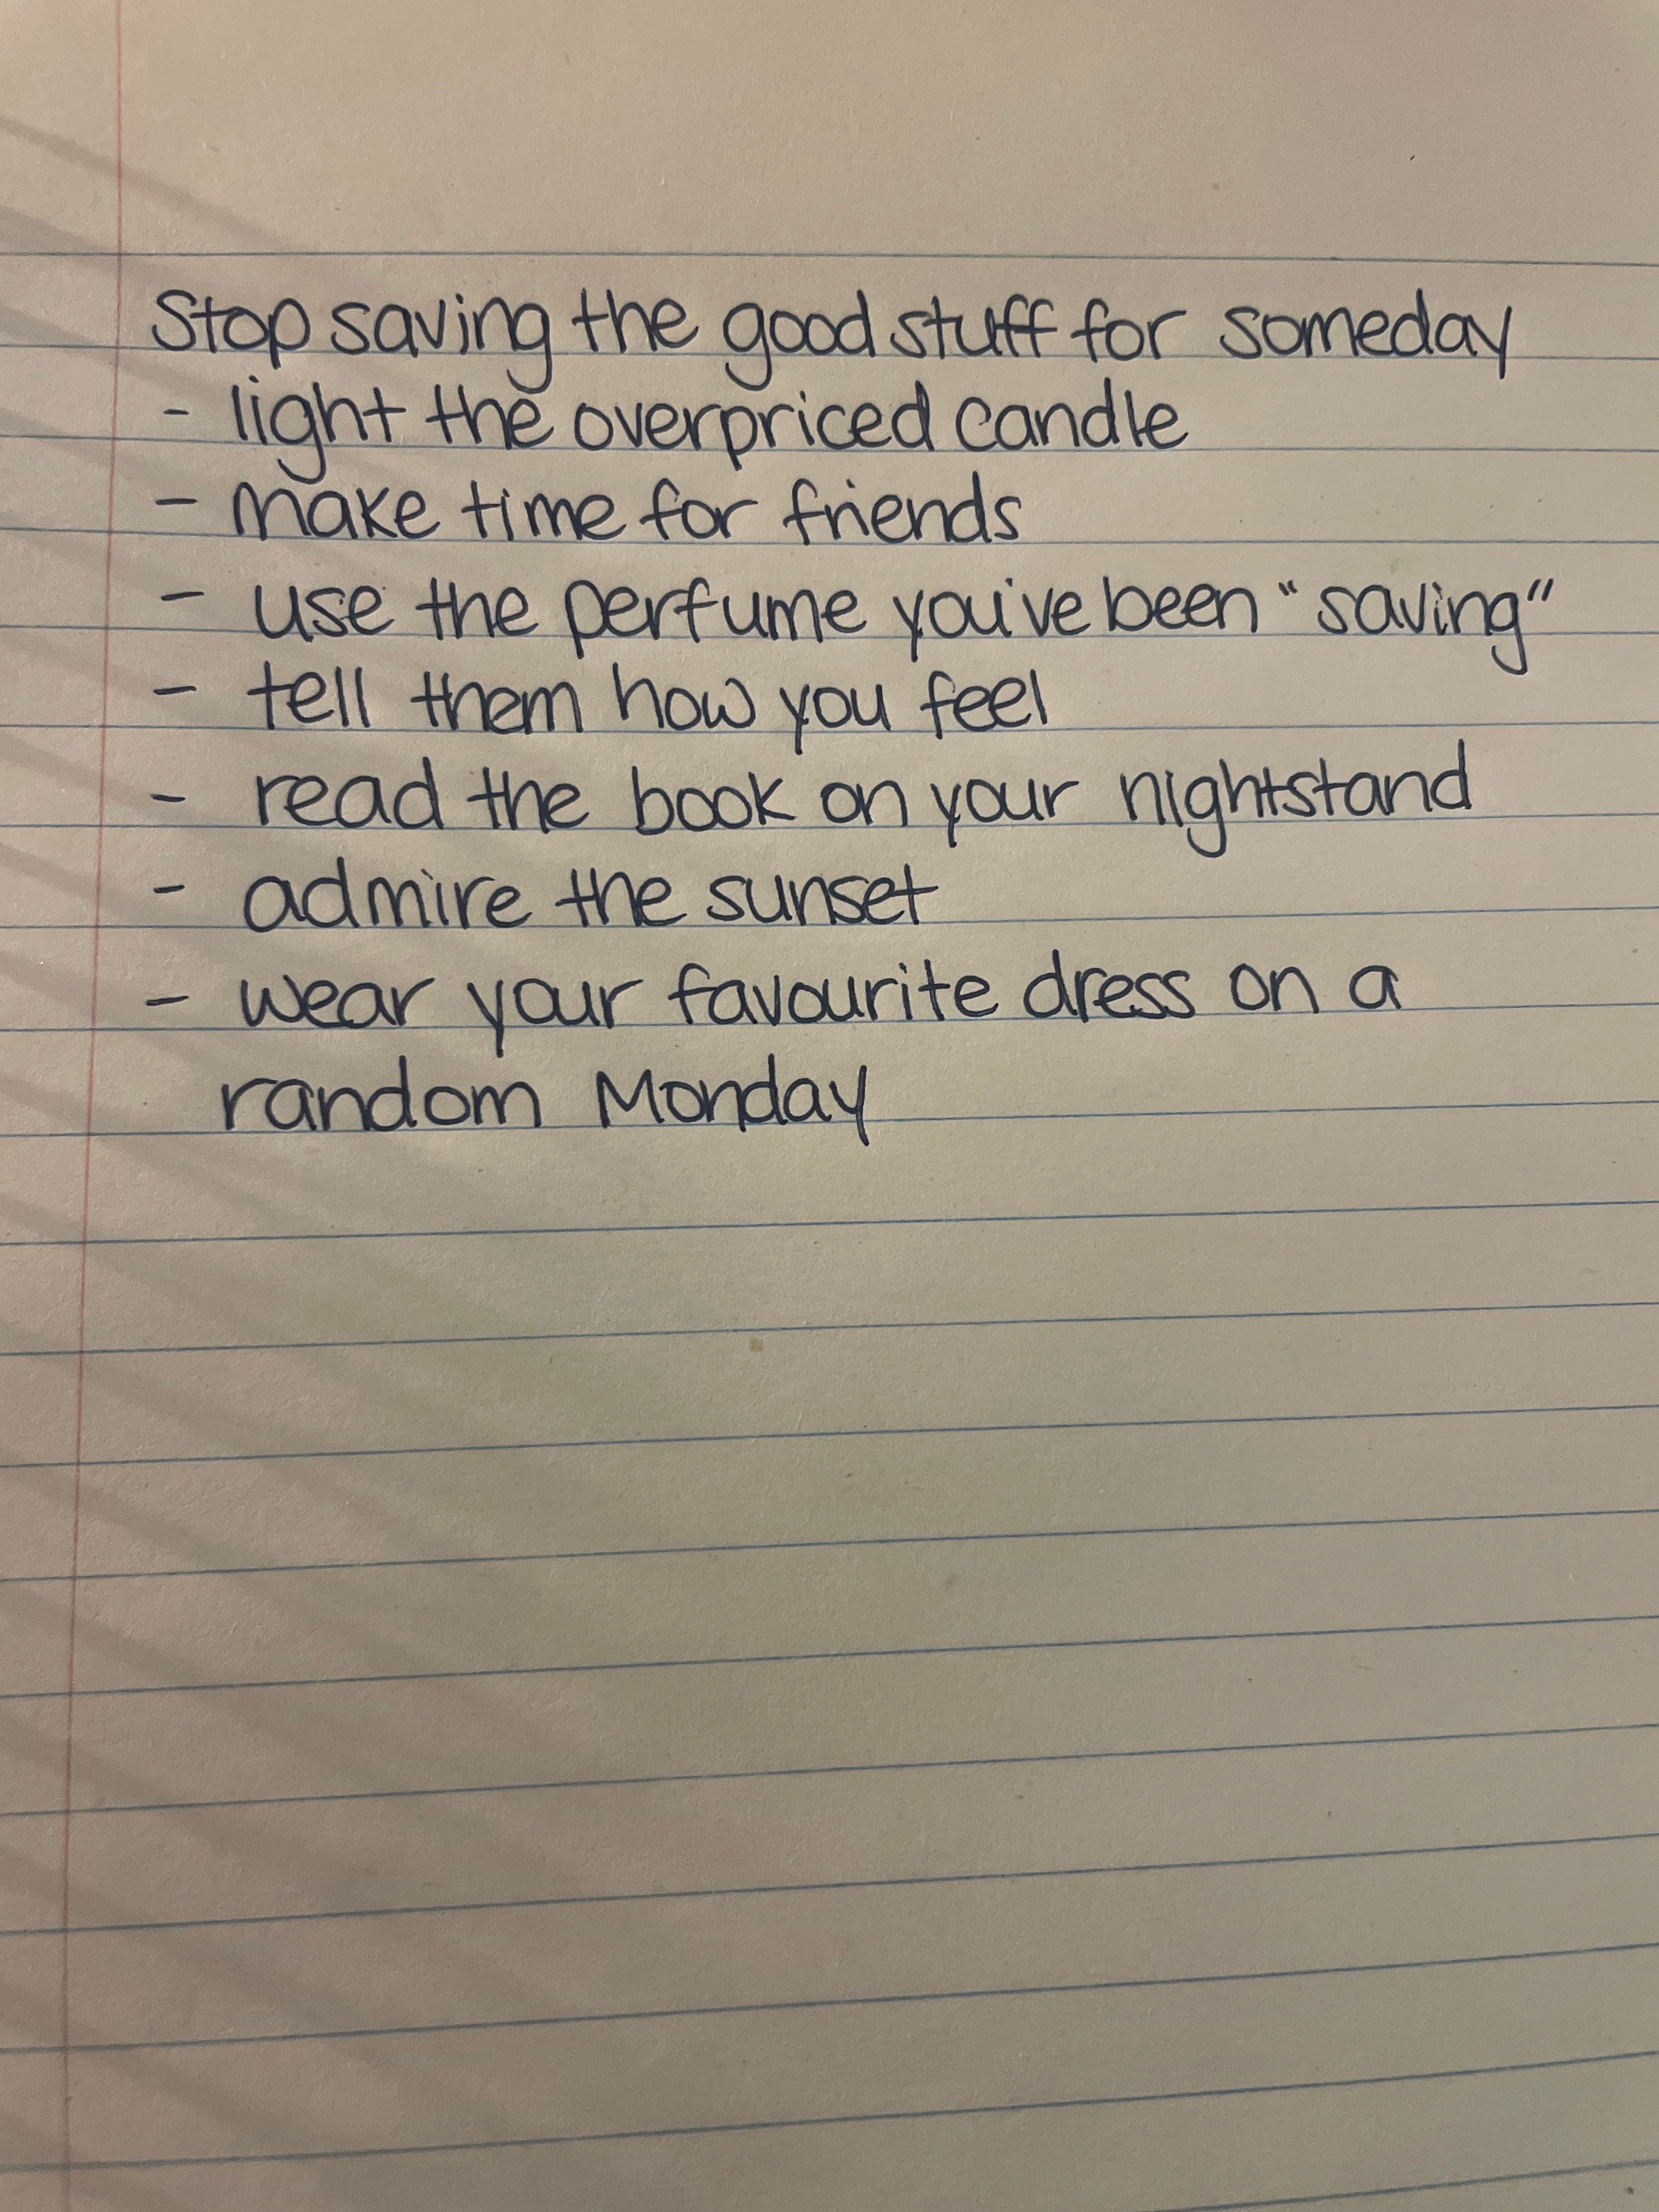 Stop saving the good stuff for someday
- light the overpriced candle
- make time for friends
- use the perfume you've been "saving"
- tell them how you feel
- read the book on your nightstand
- admire the sunset
- wear your favourite dress on a
random Monday